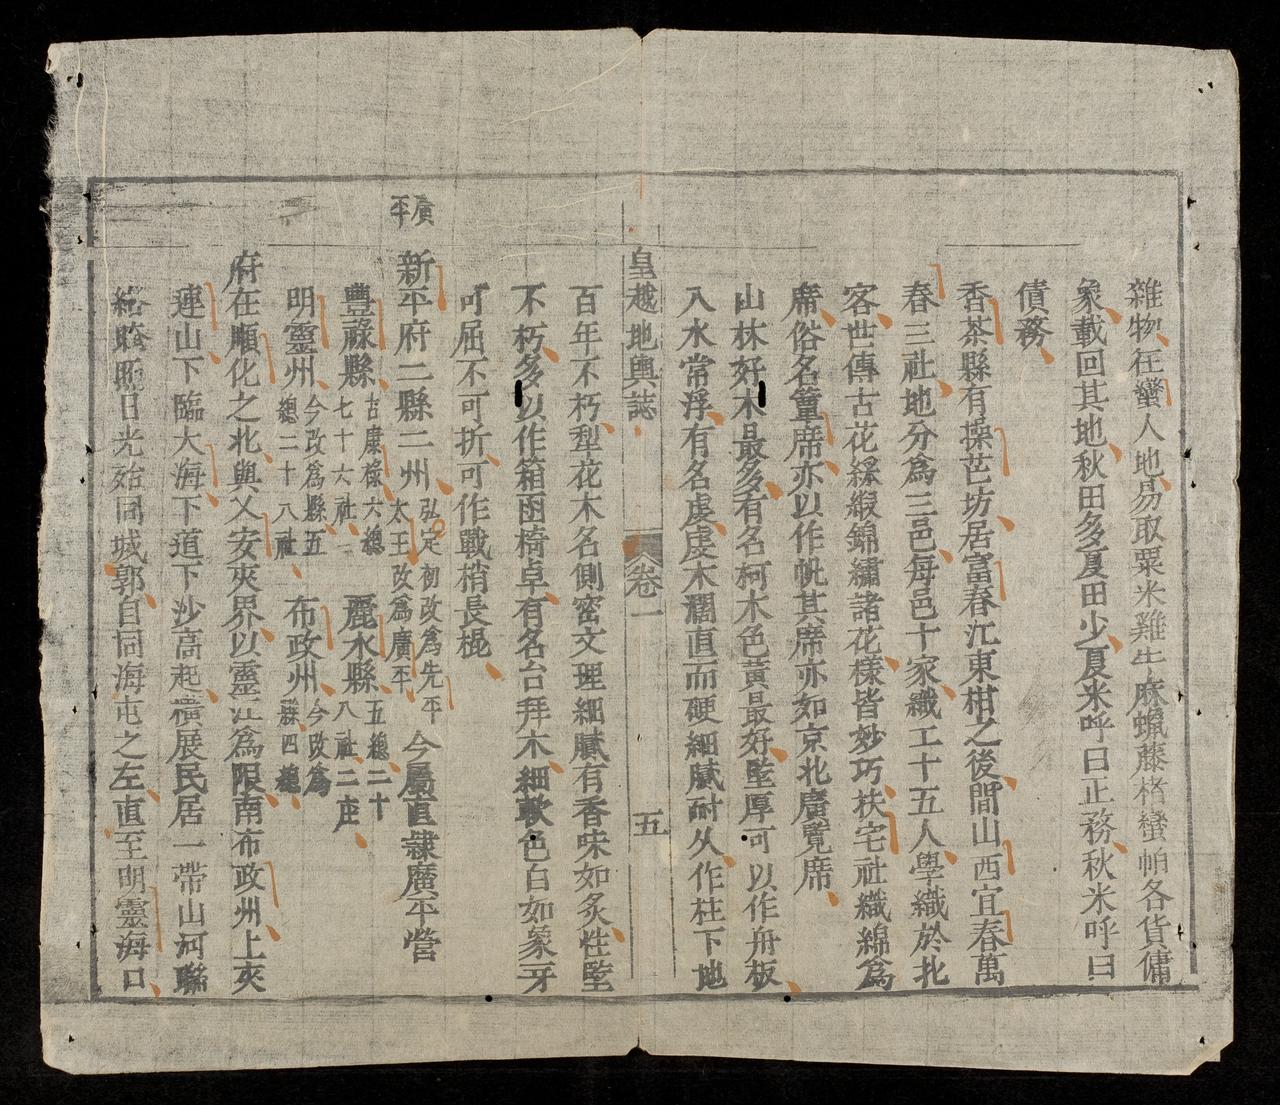 雜物往蠻人地易取粟米雞牛麻蠟藤楮蠻帕各貨傭
象載回其地秋田多夏田少夏米呼曰正務秋米呼曰
債務
香茶縣有操芒坊居富春江東柑之後間山西宜春萬
春三社地分為三邑每邑十家織工十五人學織於北
客世傳古花綵緞錦繡諸花樣皆妙巧扶宅社織綿為
席俗名篁席亦以作帆其席亦如京北廣覧席
山林好木最多有名柯木色黃最好堅厚可以作舟板
入水常浮有名虔虔木濶直而硬細膩耐久作柱下地
皇越地輿誌
卷一
五
百年不朽犁花木名側密文理細膩有香味如炙性堅
不朽多以作箱函椅卓有名台拜木細軟色白如象牙
可屈不可折可作戰梢長棍
廣平
新平府二縣二州弘定初改為先平太王改為廣平今屬直隷廣平營
豐祿縣古康祿六總七十六社麗水縣五總二十八社二庄
明靈州今改為縣五總二十八社布政州今改為縣四總
府在順化之北與乂安夾界以靈江為限南布政州上夾
連山下臨大海下道下沙高起橫展民居一帶山河聯
絡映照日光殆同城郭自同海屯之左直至明靈海口